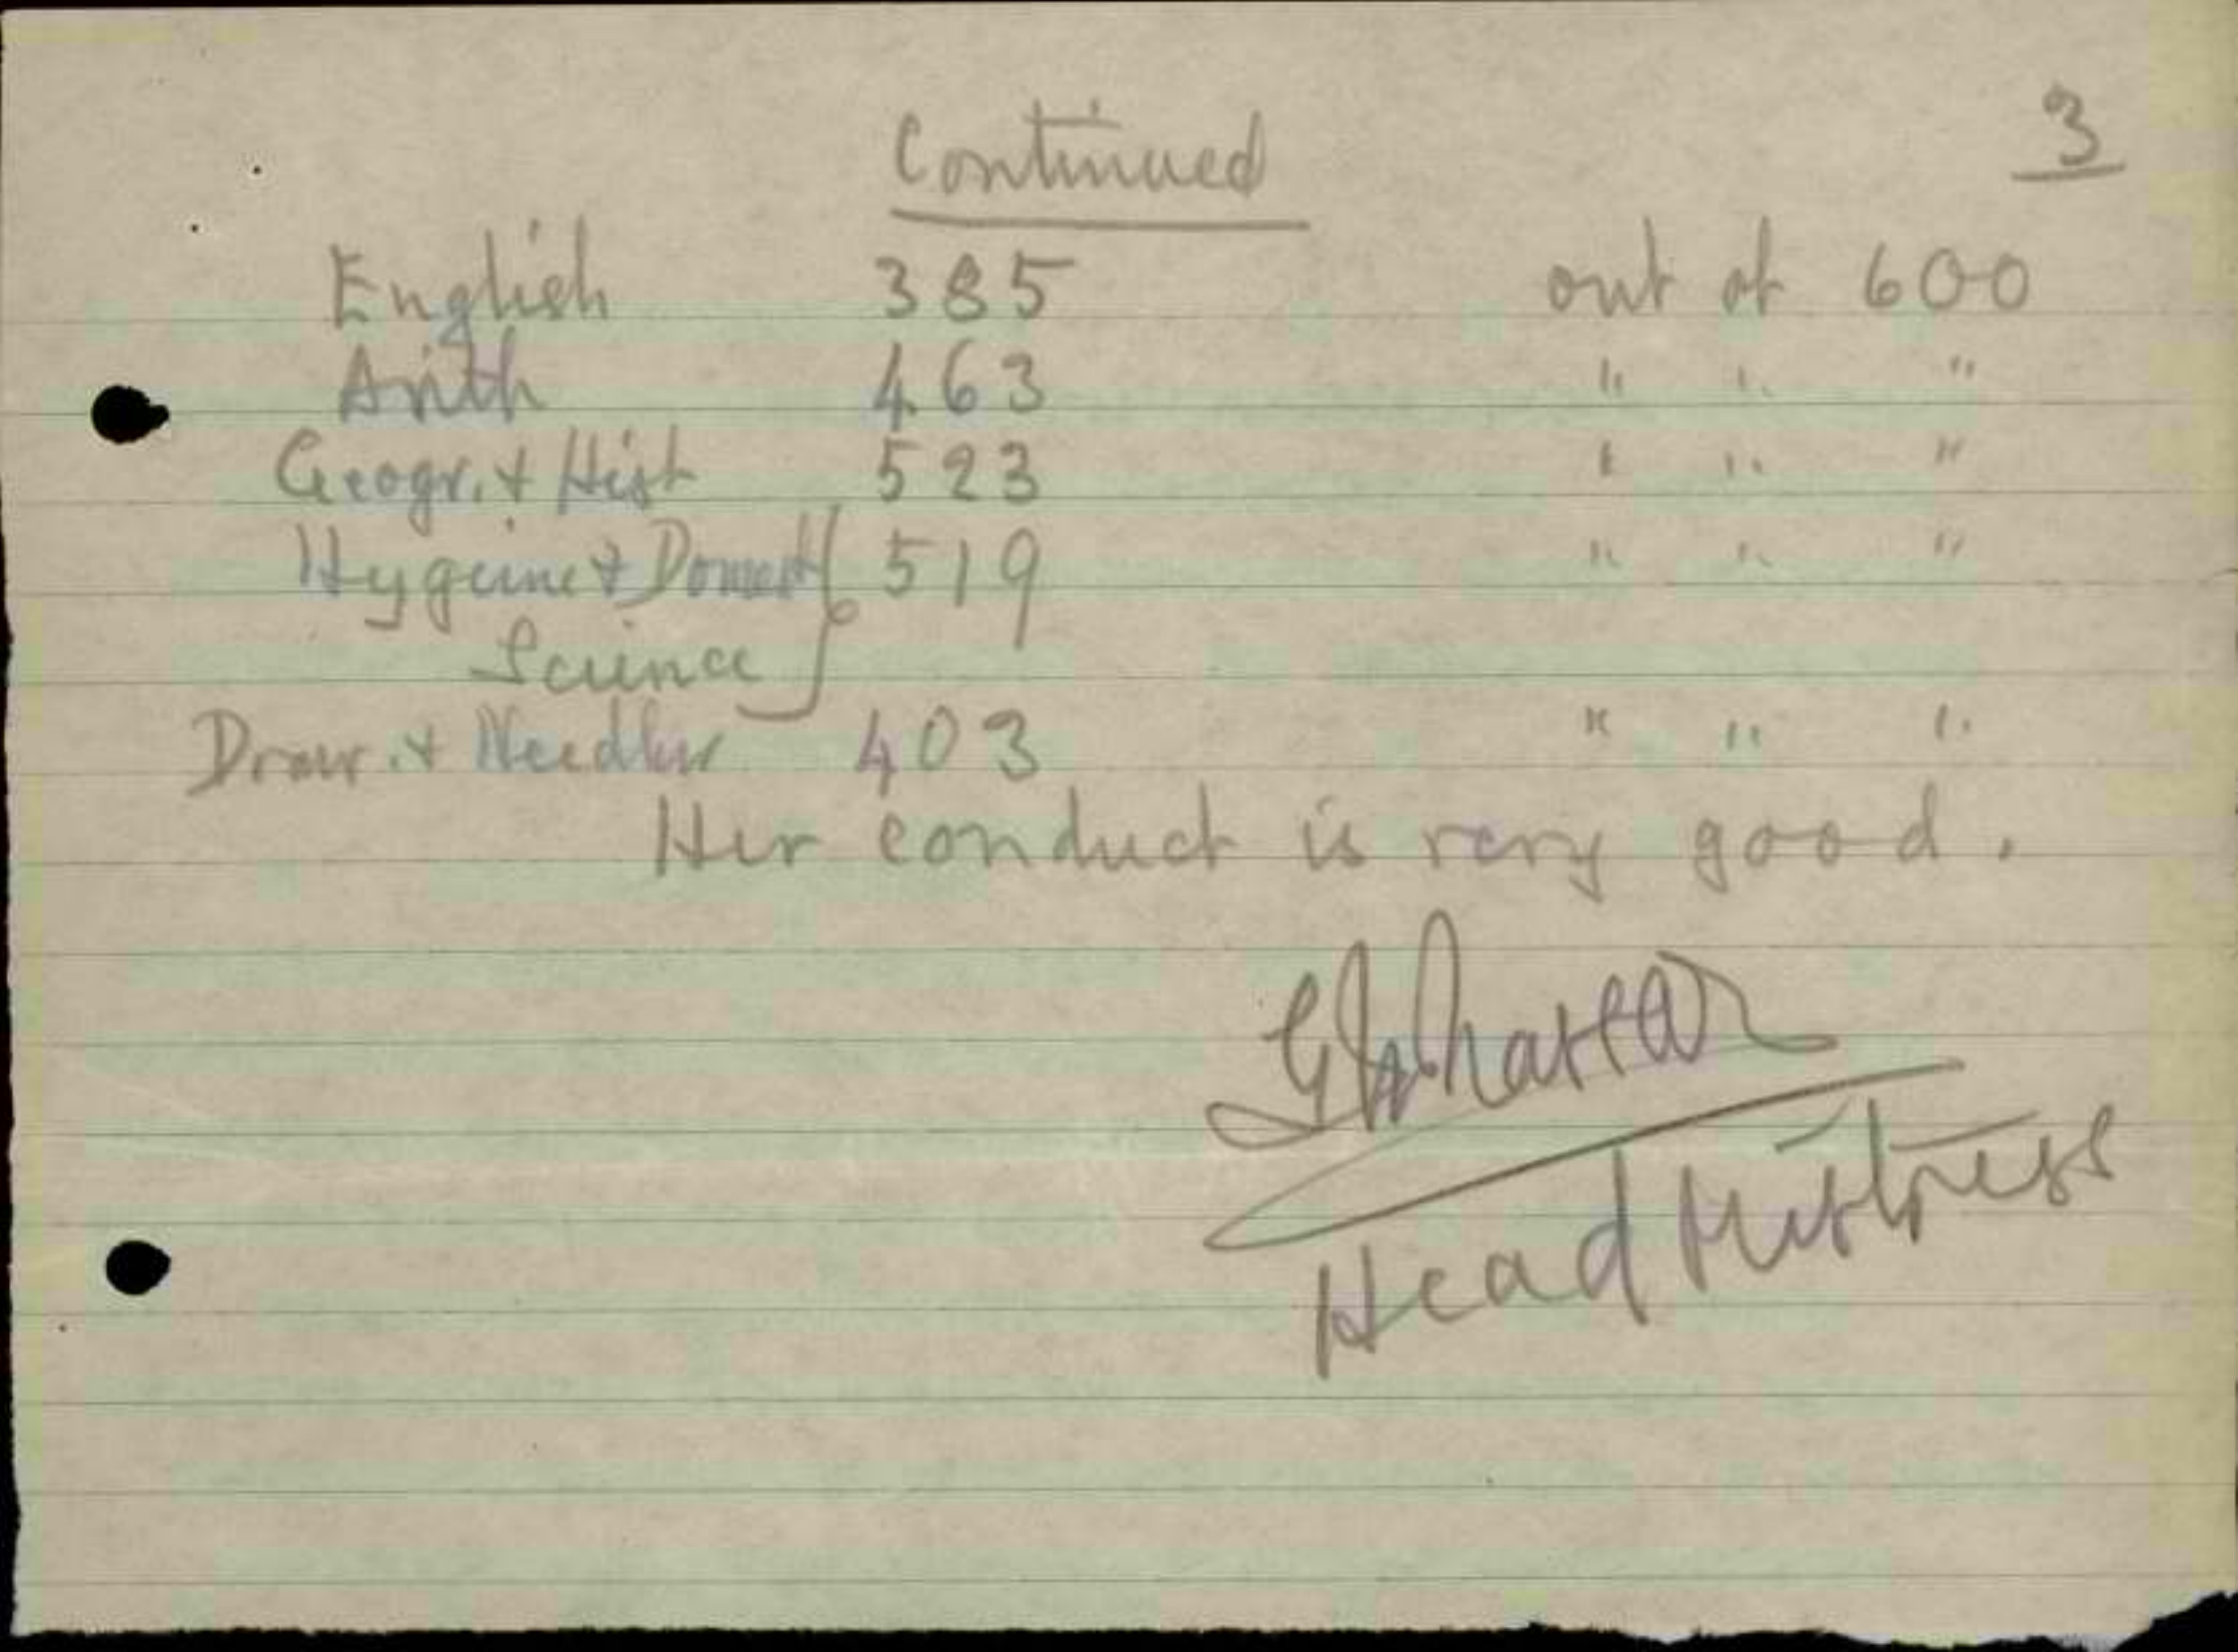 3
Continued
English 385 out of 600
Arith 463 " " "
Geogr. & Hist 523 " " "
Hygeine & Domest 519 " " "
Science
Draw. & Needlew 403 " " "
Her conduct is very good.
Head Mistress